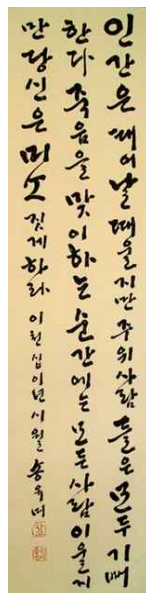 인간은 때어날 때 울지만 주위 사람들은 모두 기뻐
한다 죽음을 맞이하는 순간에는 모든 사람이 울지
만 당신은 미소 짓게 하라 이천십이년 시월